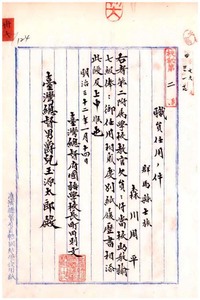 124
二
職員任用ノ件
群馬縣士族
森川周平
右者第二附属學校教官欠員ニ付當校助教諭
七級俸ニ御任用相成度別紙履歴書相添
此段及上申候也
臺灣總督府國語學校長町田則文
臺灣總督男爵兒玉源太郎殿